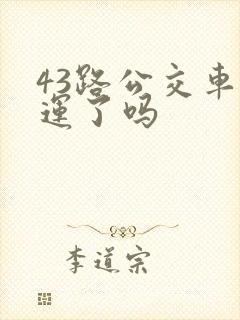 43路公交車
運了吗
李道宗